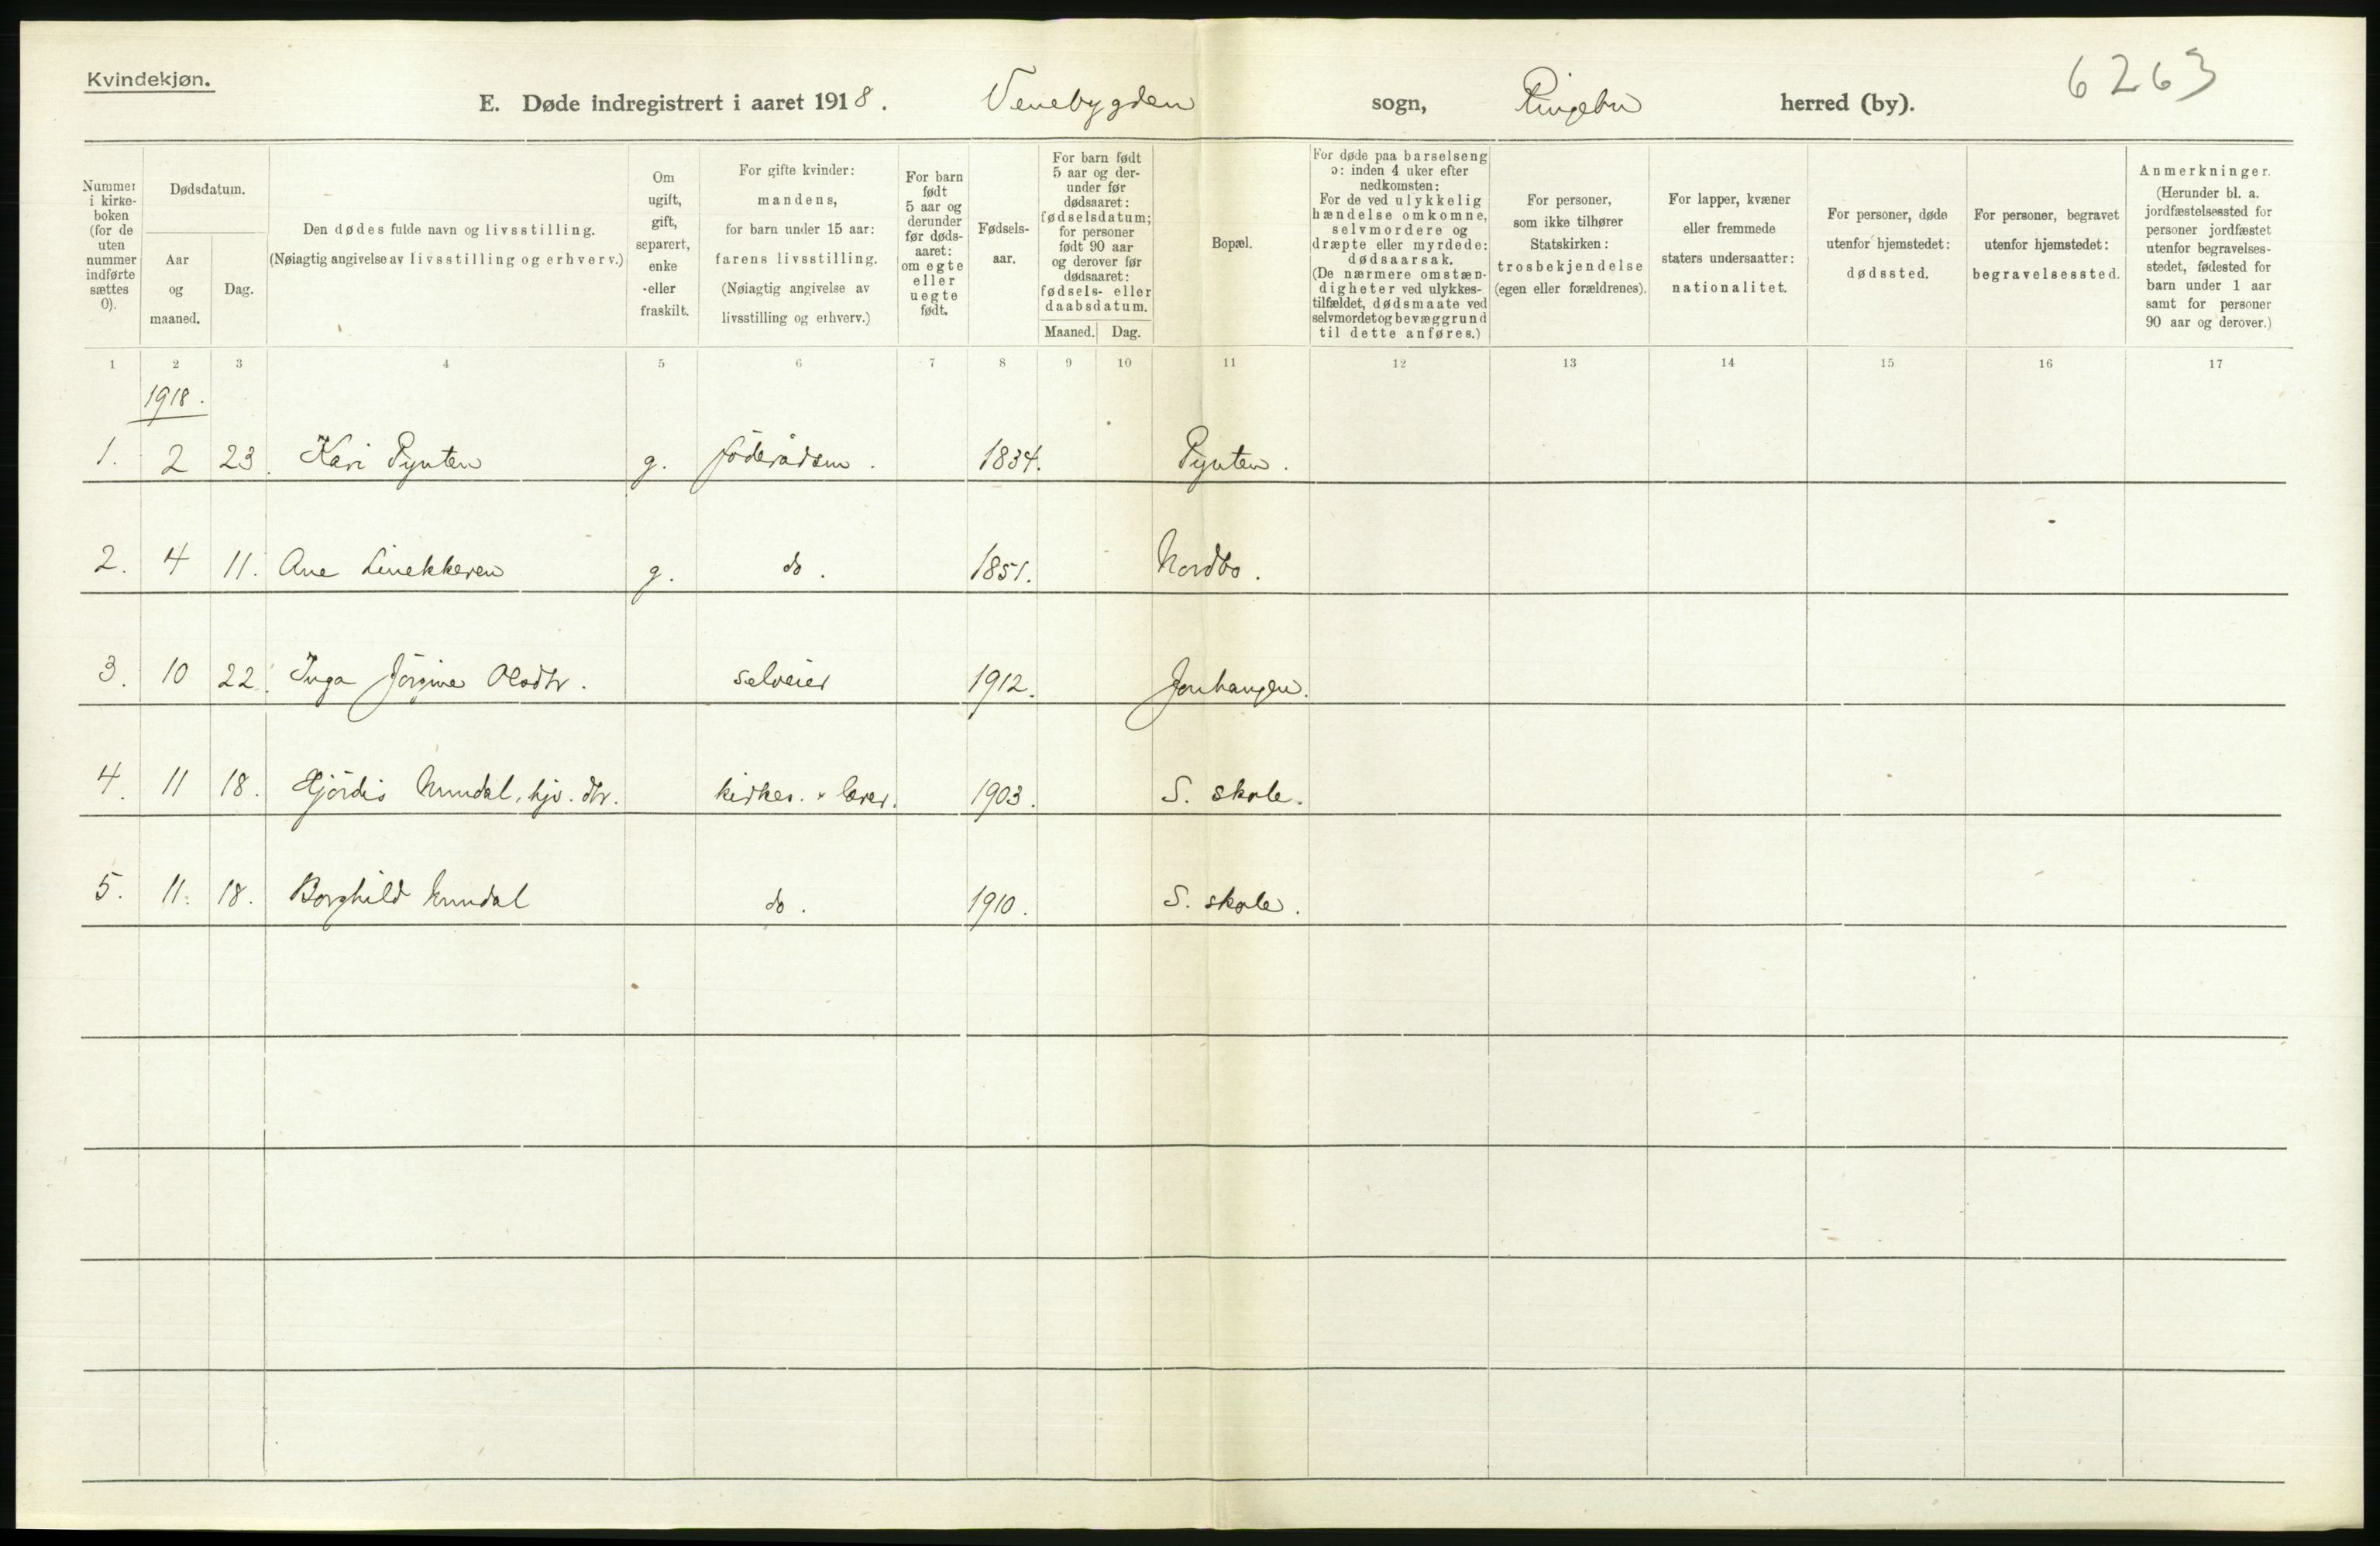 Kvindekjøn.
6263
E. Døde indregistrert i aaret 1918. Venebygden sogn, Ringebu herred (by).
Nummer i kirke-boken (for de uten nummer indførte sættes 0).
Dødsdatum.
Aar og maaned.
Dag.
Den dødes fulde navn og livsstilling.
(Nøiagtig angivelse av livsstilling og erhverv.)
Om ugift, gift, separert, enke eller fraskilt.
For gifte kvinder: mandens, for barn under 15 aar: farens livsstilling. (Nøiagtig angivelse av livsstilling og erhverv.)
For barn født 5 aar og derunder før døds-aaret: om egte eller uegte født.
Fødsels-aar.
For barn født 5 aar og der-under før dødsaaret: fødselsdatum; for personer født 90 aar og derover før dødsaaret: fødsels- eller daabsdatum.
Maaned. Dag.
Bopæl.
For døde paa barselseng ɔ: inden 4 uker efter nedkomsten: For de ved ulykkelig hændelse omkomne, selvmordere og dræpte eller myrdede: dødsaarsak. (De nærmere omstæn-digheter ved ulykkes-tilfældet, dødsmaate ved selvmordet og bevæggrund til dette anføres.)
For personer, som ikke tilhører Statskirken: trosbekjendelse (egen eller forældrenes).
For lapper, kvæner eller fremmede staters undersaatter: nationalitet.
For personer, døde utenfor hjemstedet: dødssted.
For personer, begravet utenfor hjemstedet: begravelsessted.
Anmerkninger. (Herunder bl. a. jordfæstelsessted for personer jordfæstet utenfor begravelses-stedet, fødested for barn under 1 aar samt for personer 90 aar og derover.)
1 2 3 4 5 6 7 8 9 10 11 12 13 14 15 16 17
1918.
1. 2 23. Kari Pynten g. föderådsm. 1834. Pynten.
2. 4 11. Ane Linekkeren g. do. 1851. Nordbo.
3. 10 22. Inga Jörgine Olsdtr. selveier 1912. Jonhaugen.
4. 11 18. Hjördis Mundal, hjv. dtr. kirkes. & lærer. 1903. S. skole.
5. 11. 18. Borghild Mundal do. 1910. S. skole.